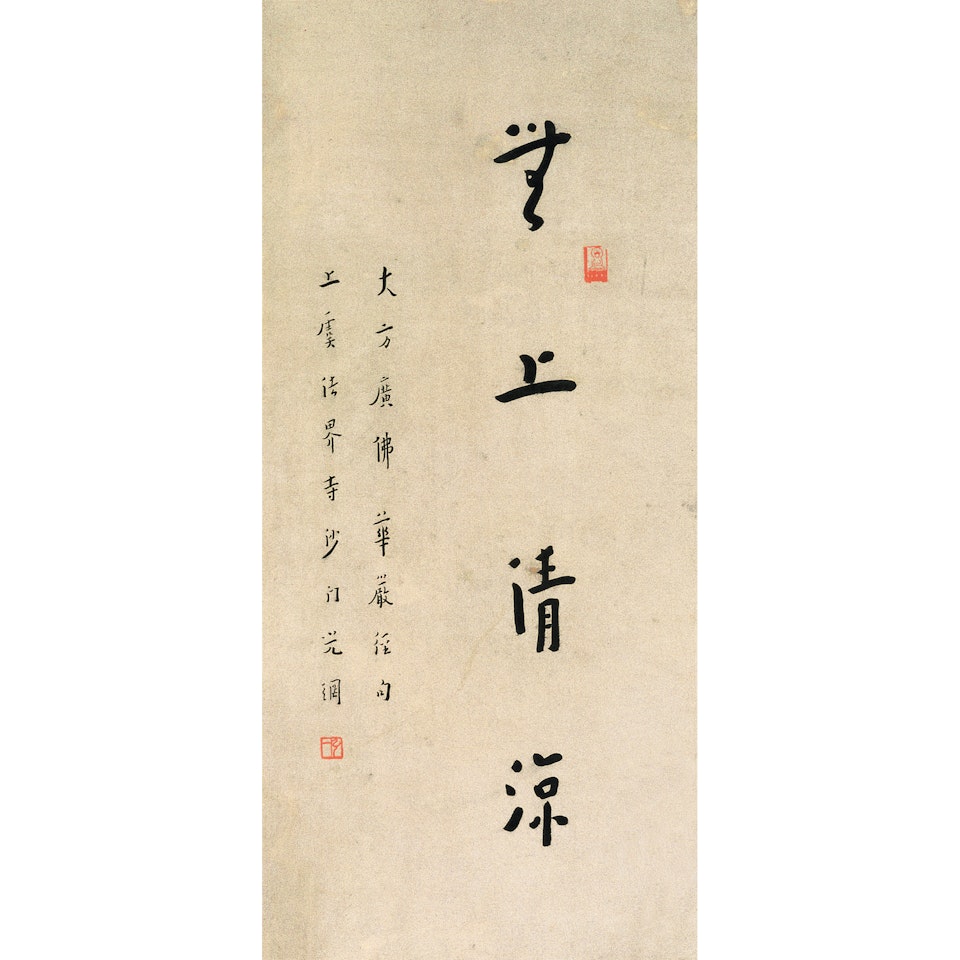 無上清涼
大方廣佛華嚴經句
上虞法界寺沙门光網